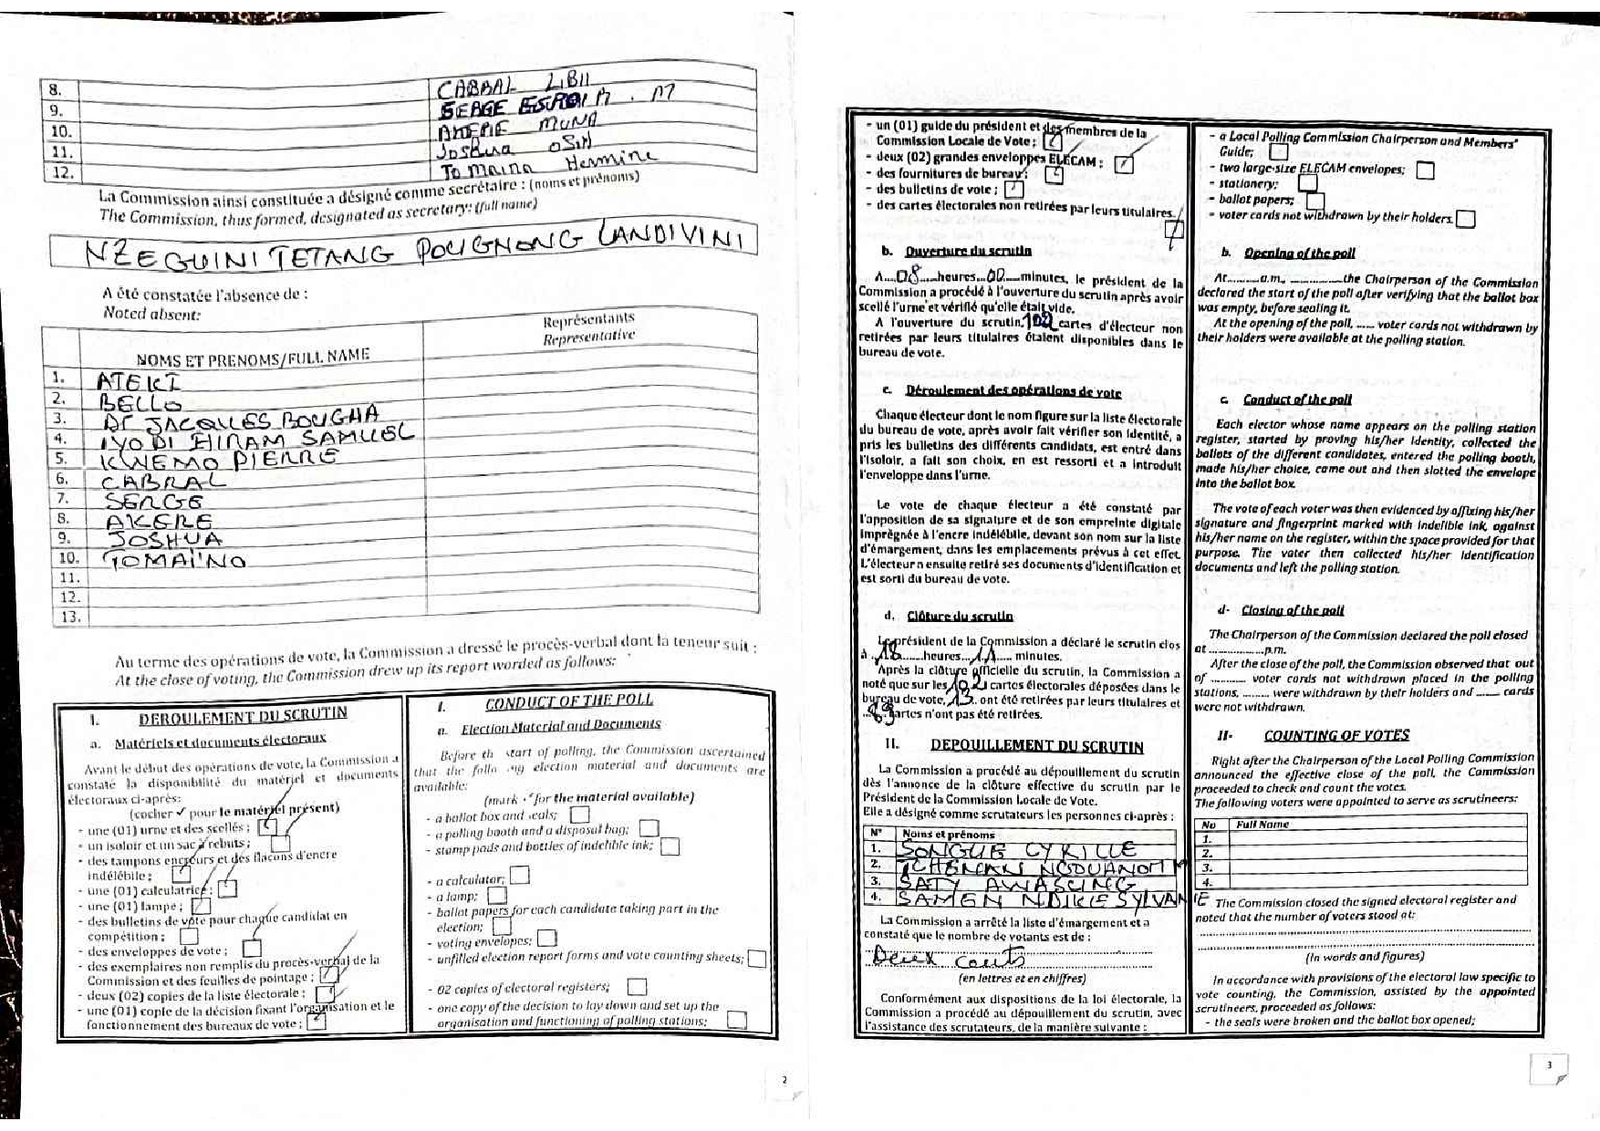 8. CABRAL LIBII
9. SERGE ESPOIR . M
10. AKERE MUNA
11. Joshua OSIH
12. To Maino Hermine
La Commission ainsi constituée a désigné comme secrétaire : (noms et prénoms)
The Commission, thus formed, designated as secretary: (full name)
NZEGUINI TETANG POUGNONG LANDIVINI
A été constatée l'absence de :
Noted absent:
NOMS ET PRENOMS/FULL NAME
Représentants
Representative
1. ATEKI
2. BELLO
3. Dr JACQUES BOUGHA
4. IYODI HIRAM SAMUEL
5. KWEMO PIERRE
6. CABRAL
7. SERGE
8. AKERE
9. JOSHUA
10. TOMAÏNO
11.
12.
13.
Au terme des opérations de vote, la Commission a dressé le procès-verbal dont la teneur suit :
At the close of voting, the Commission drew up its report worded as follows:
I. DEROULEMENT DU SCRUTIN
a. Matériels et documents électoraux
Avant le début des opérations de vote, la Commission a
constaté la disponibilité du matériel et documents
électoraux ci-après:
(cocher ✓ pour le matériel présent)
- une (01) urne et des scellés ;
- un isoloir et un sac à rebuts ;
- des tampons encreurs et des flacons d'encre
indélébile ;
- une (01) calculatrice ;
- une (01) lampe ;
- des bulletins de vote pour chaque candidat en
compétition ;
- des enveloppes de vote ;
- des exemplaires non remplis du procès-verbal de la
Commission et des feuilles de pointage ;
- deux (02) copies de la liste électorale ;
- une (01) copie de la décision fixant l'organisation et le
fonctionnement des bureaux de vote ;
I. CONDUCT OF THE POLL
a. Election Material and Documents
Before th start of polling, the Commission ascertained
that the follo ng election material and documents are
available:
(mark ✓ for the material available)
- a ballot box and seals;
- a polling booth and a disposal bag;
- stamp pads and bottles of indelible ink;
- a calculator;
- a lamp;
- ballot papers for each candidate taking part in the
election;
- voting envelopes;
- unfilled election report forms and vote counting sheets;
- 02 copies of electoral registers;
- one copy of the decision to lay down and set up the
organisation and functioning of polling stations;
2
- un (01) guide du président et des membres de la
Commission Locale de Vote ;
- deux (02) grandes enveloppes ELECAM ;
- des fournitures de bureau ;
- des bulletins de vote ;
- des cartes électorales non retirées par leurs titulaires.
b. Ouverture du scrutin
A 08 heures 00 minutes, le président de la
Commission a procédé à l'ouverture du scrutin après avoir
scellé l'urne et vérifié qu'elle était vide.
A l'ouverture du scrutin, 102 cartes d'électeur non
retirées par leurs titulaires étaient disponibles dans le
bureau de vote.
c. Déroulement des opérations de vote
Chaque électeur dont le nom figure sur la liste électorale
du bureau de vote, après avoir fait vérifier son identité, a
pris les bulletins des différents candidats, est entré dans
l'isoloir, a fait son choix, en est ressorti et a introduit
l'enveloppe dans l'urne.
Le vote de chaque électeur a été constaté par
l'apposition de sa signature et de son empreinte digitale
imprégnée à l'encre indélébile, devant son nom sur la liste
d'émargement, dans les emplacements prévus à cet effet.
L'électeur a ensuite retiré ses documents d'identification et
est sorti du bureau de vote.
d. Clôture du scrutin
Le président de la Commission a déclaré le scrutin clos
à 18 heures 11 minutes.
Après la clôture officielle du scrutin, la Commission a
noté que sur les 102 cartes électorales déposées dans le
bureau de vote, 13 ont été retirées par leurs titulaires et
89 cartes n'ont pas été retirées.
II. DEPOUILLEMENT DU SCRUTIN
La Commission a procédé au dépouillement du scrutin
dès l'annonce de la clôture effective du scrutin par le
Président de la Commission Locale de Vote.
Elle a désigné comme scrutateurs les personnes ci-après :
N° Noms et prénoms
1. SONGUE CYRILLE
2. TCHEMANI NGOUANOM
3. SATY AWASCING
4. SAMEN NDIKE SYLVANIE
La Commission a arrêté la liste d'émargement et a
constaté que le nombre de votants est de :
Deux cents
(en lettres et en chiffres)
Conformément aux dispositions de la loi électorale, la
Commission a procédé au dépouillement du scrutin, avec
l'assistance des scrutateurs, de la manière suivante :
- a Local Polling Commission Chairperson and Members"
Guide;
- two large-size ELECAM envelopes;
- stationery;
- ballot papers;
- voter cards not withdrawn by their holders.
b. Opening of the poll
At..........a.m, ...............the Chairperson of the Commission
declared the start of the poll after verifying that the ballot box
was empty, before sealing it.
At the opening of the poll, ...... voter cards not withdrawn by
their holders were available at the polling station.
c. Conduct of the poll
Each elector whose name appears on the polling station
register, started by proving his/her identity, collected the
ballots of the different candidates, entered the polling booth,
made his/her choice, came out and then slotted the envelope
into the ballot box.
The vote of each voter was then evidenced by affixing his/her
signature and fingerprint marked with indelible ink, against
his/her name on the register, within the space provided for that
purpose. The voter then collected his/her identification
documents and left the polling station.
d- Closing of the poll
The Chairperson of the Commission declared the poll closed
at .................p.m.
After the close of the poll, the Commission observed that out
of .......... voter cards not withdrawn placed in the polling
stations, ......... were withdrawn by their holders and ....... cards
were not withdrawn.
II- COUNTING OF VOTES
Right after the Chairperson of the Local Polling Commission
announced the effective close of the poll, the Commission
proceeded to check and count the votes.
The following voters were appointed to serve as scrutineers:
No Full Name
1.
2.
3.
4.
The Commission closed the signed electoral register and
noted that the number of voters stood at:
(In words and figures)
In accordance with provisions of the electoral law specific to
vote counting, the Commission, assisted by the appointed
scrutineers, proceeded as follows:
- the seals were broken and the ballot box opened;
3